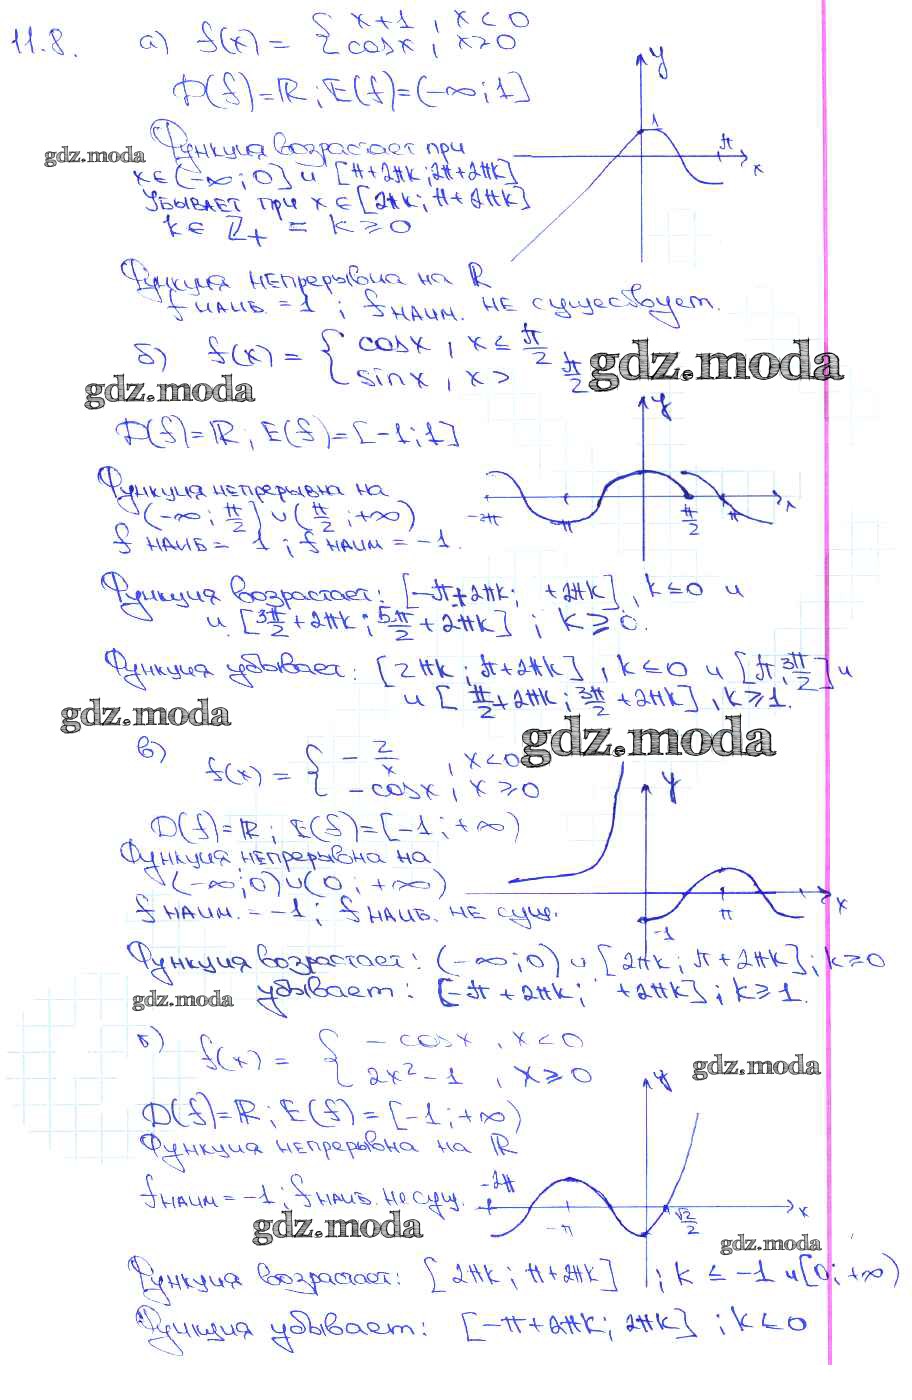 11.8. а) f(x) = { x+1 , x < 0
cosx , x ≥ 0
D(f)=ℝ ; E(f)=(-∞; 1]
y
1
π
x
Функция возрастает при
gdz.moda
x∈(-∞; 0] и [π+2πk; 2π+2πk]
Убывает при x∈[2πk; π+2πk]
k∈ ℤ+ = k ≥ 0
Функция непрерывна на ℝ
f наиб. = 1 ; f наим. не существует.
б) f(x) = { cosx , x ≤ π/2
sinx , x > π/2
gdz.moda
gdz.moda
D(f)=ℝ ; E(f)=[-1; 1]
y
Функция непрерывна на
(-∞; π/2] ∪ (π/2; +∞)
-2π
-π
π/2
π
x
f наиб = 1 ; f наим = -1.
Функция возрастает: [-π+2πk; +2πk], k≤0 и
и [3π/2 + 2πk; 5π/2 + 2πk] ; k ≥ 0.
Функция убывает: [2πk; π+2πk], k≤0 и [π; 3π/2] и
и [π/2 + 2πk; 3π/2 + 2πk], k≥1.
gdz.moda
gdz.moda
в) f(x) = { -2/x , x<0
-cosx , x ≥ 0
y
D(f)=ℝ ; E(f)=[-1; +∞)
Функция непрерывна на
(-∞; 0) ∪ (0; +∞)
f наим. = -1 ; f наиб. не сущ.
-1
π
x
Функция возрастает: (-∞; 0) ∪ [2πk; π+2πk]; k≥0
gdz.moda
убывает: [-π+2πk; +2πk]; k≥1.
f(x) = { -cosx , x<0
2x²-1 , x ≥ 0
gdz.moda
y
D(f)=ℝ ; E(f)=[-1; +∞)
Функция непрерывна на ℝ
f наим = -1 ; f наиб. не сущ.
-2π
-π
√2/2
x
gdz.moda
gdz.moda
Функция возрастает: [2πk; π+2πk] ; k ≤ -1 и [0; +∞)
Функция убывает: [-π+2πk; 2πk] ; k≤0